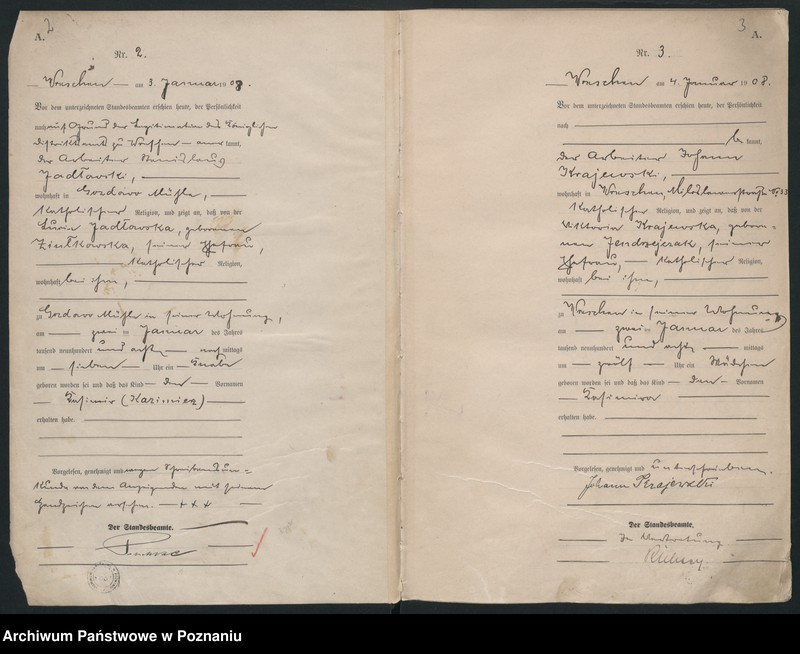 2
A.
Nr. 2.
Wreschen am 3. Januar 1908.
Vor dem unterzeichneten Standesbeamten erschien heute, der Persönlichkeit
nach auf Grund der Legitimation des Königlichen
Distriktsamts zu Wreschen kannt,
der Arbeiter Stanislaus
Jadlowski,
wohnhaft in Gozdowo Mühle,
katholischer Religion, und zeigt an, daß von der
Jadlowska, geborenen
Ziulkowska, seiner Ehefrau,
katholischer Religion,
wohnhaft bei ihm,
zu Gozdowo Mühle in seiner Wohnung,
am zwei ten Januar des Jahres
tausend neunhundert und acht nachmittags
um sieben Uhr ein Knabe
geboren worden sei und daß das Kind den Vornamen
Kasimir (Kazimierz)
erhalten habe.
Vorgelesen, genehmigt und wegen Schreibensun=
kunde von dem Anzeigenden mit seinem
Handzeichen versehen. + + +
Der Standesbeamte.
3
A.
Nr. 3.
Wreschen am 4. Januar 1908.
Vor dem unterzeichneten Standesbeamten erschien heute, der Persönlichkeit
nach
be kannt,
der Arbeiter Johann
Krajewski,
wohnhaft in Wreschen, Miloslawerstraße Nr. 33
katholischer Religion, und zeigt an, daß von der
Viktoria Krajewska, gebore=
nen Jendrzejczak, seiner
Ehefrau, katholischer Religion,
wohnhaft bei ihm,
zu Wreschen in seiner Wohnung
am zwei ten Januar des Jahres
tausend neunhundert und acht mittags
um zwölf Uhr ein Mädchen
geboren worden sei und daß das Kind den Vornamen
Kasimira
erhalten habe.
Vorgelesen, genehmigt und unterschrieben.
Johann Krajewski
Der Standesbeamte.
In Vertretung
Archiwum Państwowe w Poznaniu